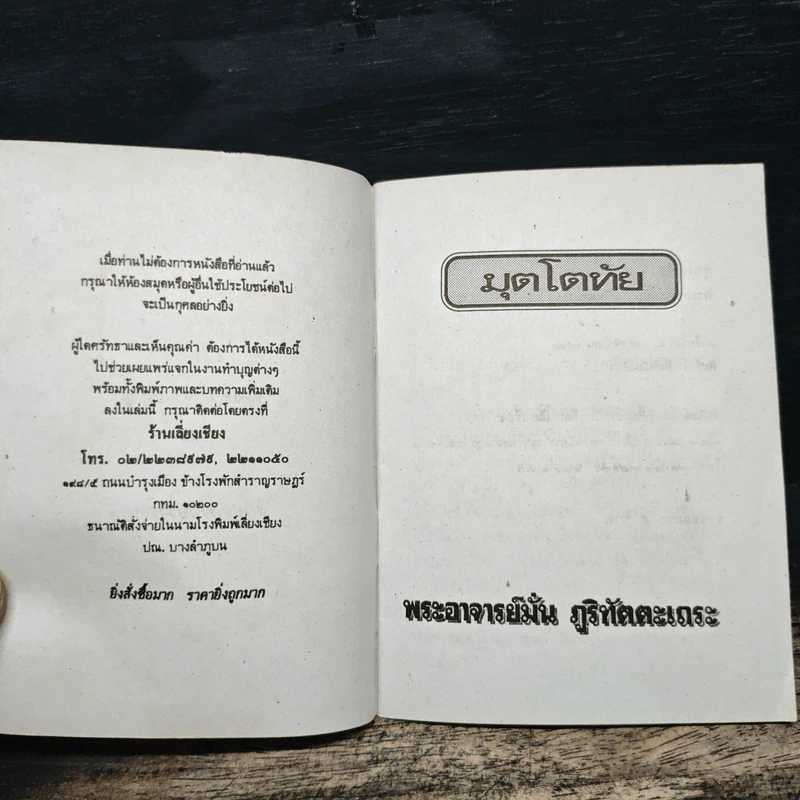 เมื่อท่านไม่ต้องการหนังสือที่อ่านแล้ว
กรุณาให้ห้องสมุดหรือผู้อื่นใช้ประโยชน์ต่อไป
จะเป็นกุศลอย่างยิ่ง
ผู้ใดศรัทธาและเห็นคุณค่า ต้องการได้หนังสือนี้
ไปช่วยเผยแพร่แจกในงานทำบุญต่างๆ
พร้อมทั้งพิมพ์ภาพและบทความเพิ่มเติม
ลงในเล่มนี้ กรุณาติดต่อโดยตรงที่
ร้านเลี่ยงเชียง
โทร. ๐๒/๒๒๓๘๙๗๙, ๒๒๑๑๐๕๐
๑๙๘/๕ ถนนบำรุงเมือง ข้างโรงพักสำราญราษฎร์
กทม. ๑๐๒๐๐
ธนาณัติสั่งจ่ายในนามโรงพิมพ์เลี่ยงเชียง
ปณ. บางลำภูบน
ยิ่งสั่งซื้อมาก ราคายิ่งถูกมาก
มุตโตทัย
พระอาจารย์มั่น ภูริทัตตะเถระ